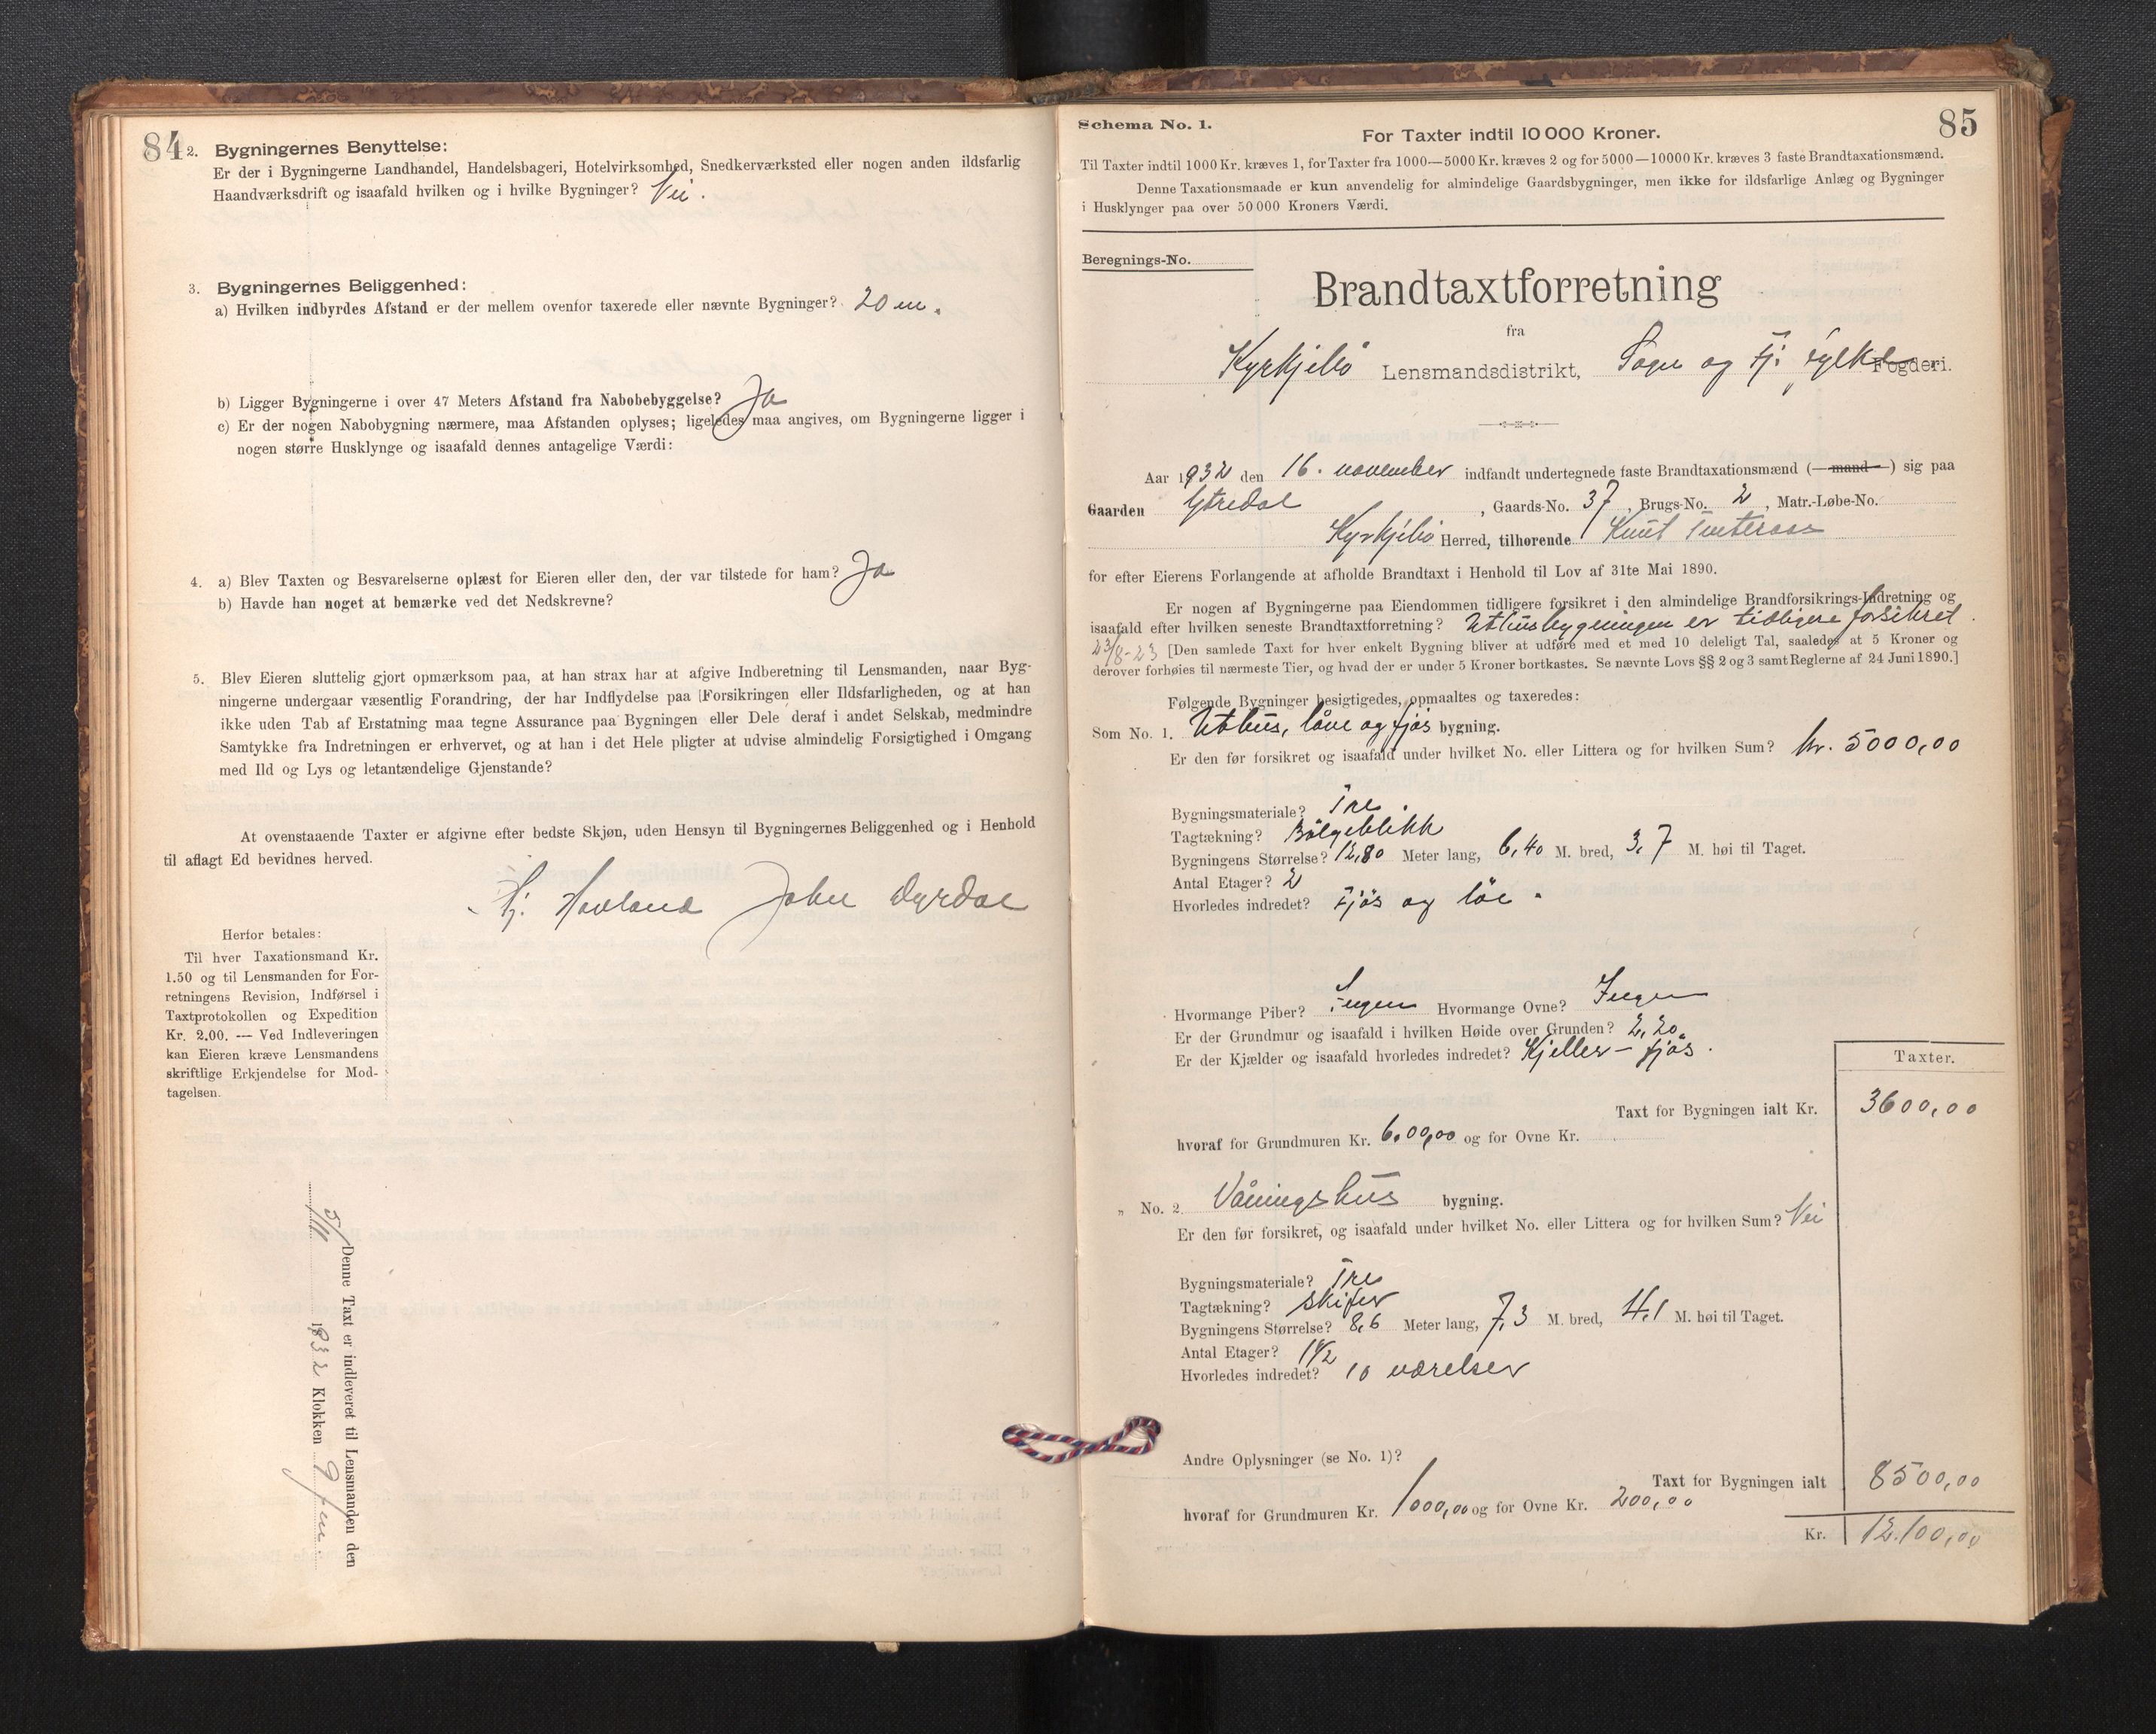 84
2. Bygningernes Benyttelse:
Er der i Bygningerne Landhandel, Handelsbageri, Hotelvirksomhed, Snedkerværksted eller nogen anden ildsfarlig
Haandværksdrift og isaafald hvilken og i hvilke Bygninger? Nei.
3. Bygningernes Beliggenhed:
a) Hvilken indbyrdes Afstand er der mellem ovenfor taxerede eller nævnte Bygninger? 20 m.
b) Ligger Bygningerne i over 47 Meters Afstand fra Nabobebyggelse? Ja
c) Er der nogen Nabobygning nærmere, maa Afstanden oplyses; ligeledes maa angives, om Bygningerne ligger i
nogen større Husklynge og isaafald dennes antagelige Værdi:
4. a) Blev Taxten og Besvarelserne oplæst for Eieren eller den, der var tilstede for ham? Ja
b) Havde han noget at bemærke ved det Nedskrevne?
5. Blev Eieren sluttelig gjort opmærksom paa, at han strax har at afgive Indberetning til Lensmanden, naar Byg-
ningerne undergaar væsentlig Forandring, der har Indflydelse paa Forsikringen eller Ildsfarligheden, og at han
ikke uden Tab af Erstatning maa tegne Assurance paa Bygningen eller Dele deraf i andet Selskab, medmindre
Samtykke fra Indretningen er erhvervet, og at han i det Hele pligter at udvise almindelig Forsigtighed i Omgang
med Ild og Lys og letantændelige Gjenstande?
At ovenstaaende Taxter er afgivne efter bedste Skjøn, uden Hensyn til Bygningernes Beliggenhed og i Henhold
til aflagt Ed bevidnes herved.
Hj. Hovland John Dyrdal
Herfor betales:
Til hver Taxationsmand Kr.
1.50 og til Lensmanden for For-
retningens Revision, Indførsel i
Taxtprotokollen og Expedition
Kr. 2.00. — Ved Indleveringen
kan Eieren kræve Lensmandens
skriftlige Erkjendelse for Mod-
tagelsen.
Denne Taxt er indleveret til Lensmanden den
1932 Klokken 9 fm.
85
Schema No. 1.
For Taxter indtil 10 000 Kroner.
Til Taxter indtil 1000 Kr. kræves 1, for Taxter fra 1000—5000 Kr. kræves 2 og for 5000—10000 Kr. kræves 3 faste Brandtaxationsmænd.
Denne Taxationsmaade er kun anvendelig for almindelige Gaardsbygninger, men ikke for ildsfarlige Anlæg og Bygninger
i Husklynger paa over 50000 Kroners Værdi.
Beregnings-No.
Brandtaxtforretning
fra
Kyrkjebø Lensmandsdistrikt, Sogn og Fj. fylke Fogderi.
Aar 1932 den 16. november indfandt undertegnede faste Brandtaxationsmænd (—mand—) sig paa
Gaarden Ytredal, Gaards-No. 37, Brugs-No. 2, Matr.-Løbe-No.
Kyrkjebø Herred, tilhørende Knut Tveteraas
for efter Eierens Forlangende at afholde Brandtaxt i Henhold til Lov af 31te Mai 1890.
Er nogen af Bygningerne paa Eiendommen tidligere forsikret i den almindelige Brandforsikrings-Indretning og
isaafald efter hvilken seneste Brandtaxtforretning? Uthusbygningen er tidligere forsikret.
23/8-23 [Den samlede Taxt for hver enkelt Bygning bliver at udføre med et med 10 deleligt Tal, saaledes at 5 Kroner og
derover forhøies til nærmeste Tier, og hvad der er under 5 Kroner bortkastes. Se nævnte Lovs §§ 2 og 3 samt Reglerne af 24 Juni 1890.]
Følgende Bygninger besigtigedes, opmaaltes og taxeredes:
Som No. 1. Uthus, låve og fjøs bygning.
Er den før forsikret og isaafald under hvilket No. eller Littera og for hvilken Sum? kr. 5000,00
Bygningsmateriale? Tre
Tagtækning? Bølgeblikk
Bygningens Størrelse? 12,80 Meter lang, 6,40 M. bred, 3,7 M. høi til Taget.
Antal Etager? 2
Hvorledes indredet? Fjøs og løe.
Hvormange Piber? Ingen Hvormange Ovne? Ingen
Er der Grundmur og isaafald i hvilken Høide over Grunden? 2,20
Er der Kjælder og isaafald hvorledes indredet? Kjeller – fjøs.
Taxter.
Taxt for Bygningen ialt Kr. 3600,00
hvoraf for Grundmuren Kr. 6,00,00 og for Ovne Kr.
„ No. 2 Våningshus bygning.
Er den før forsikret, og isaafald under hvilket No. eller Littera og for hvilken Sum? Nei
Bygningsmateriale? Tre
Tagtækning? Skifer
Bygningens Størrelse? 8,6 Meter lang, 7,3 M. bred, 4,1 M. høi til Taget.
Antal Etager? 1 1/2
Hvorledes indredet? 10 værelser
Andre Oplysninger (se No. 1)?
Taxt for Bygningen ialt 8500,00
hvoraf for Grundmuren Kr. 1000,00 og for Ovne Kr. 200,00
Kr. 12.100,00